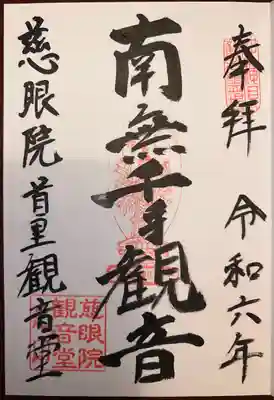 奉拝 令和六年
南無千手観音
慈眼院首里観音堂
慈眼院
観音堂